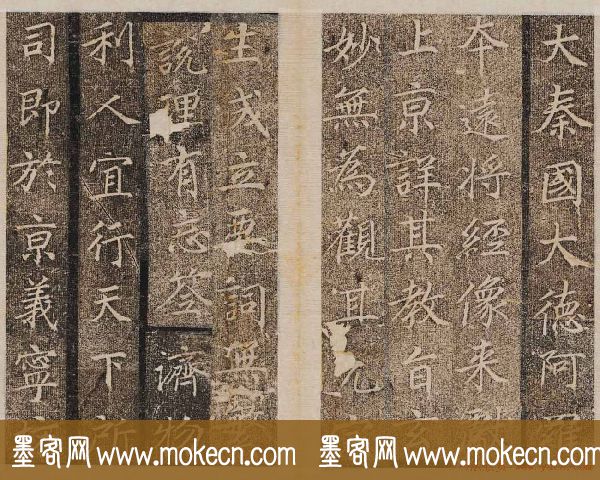 大秦國大德阿羅
夲遠將經像来
上京詳其教旨玄
妙無為觀其元
生成立要詞無
說理有忘筌濟物
利人宜行天下所
司即於京義寧
墨客网 www.mokecn.com 墨客网 www.mokecn.com